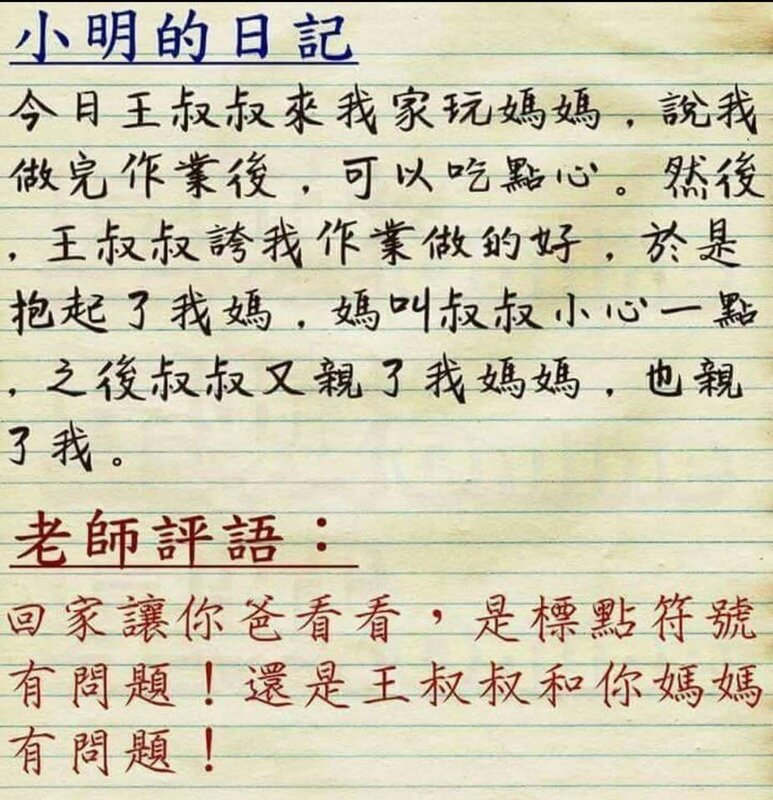 小明的日記
今日王叔叔來我家玩媽媽，說我
做完作業後，可以吃點心。然後
，王叔叔誇我作業做的好，於是
抱起了我媽，媽叫叔叔小心一點
，之後叔叔又親了我媽媽，也親
了我。
老師評語：
回家讓你爸看看，是標點符號
有問題！還是王叔叔和你媽媽
有問題！